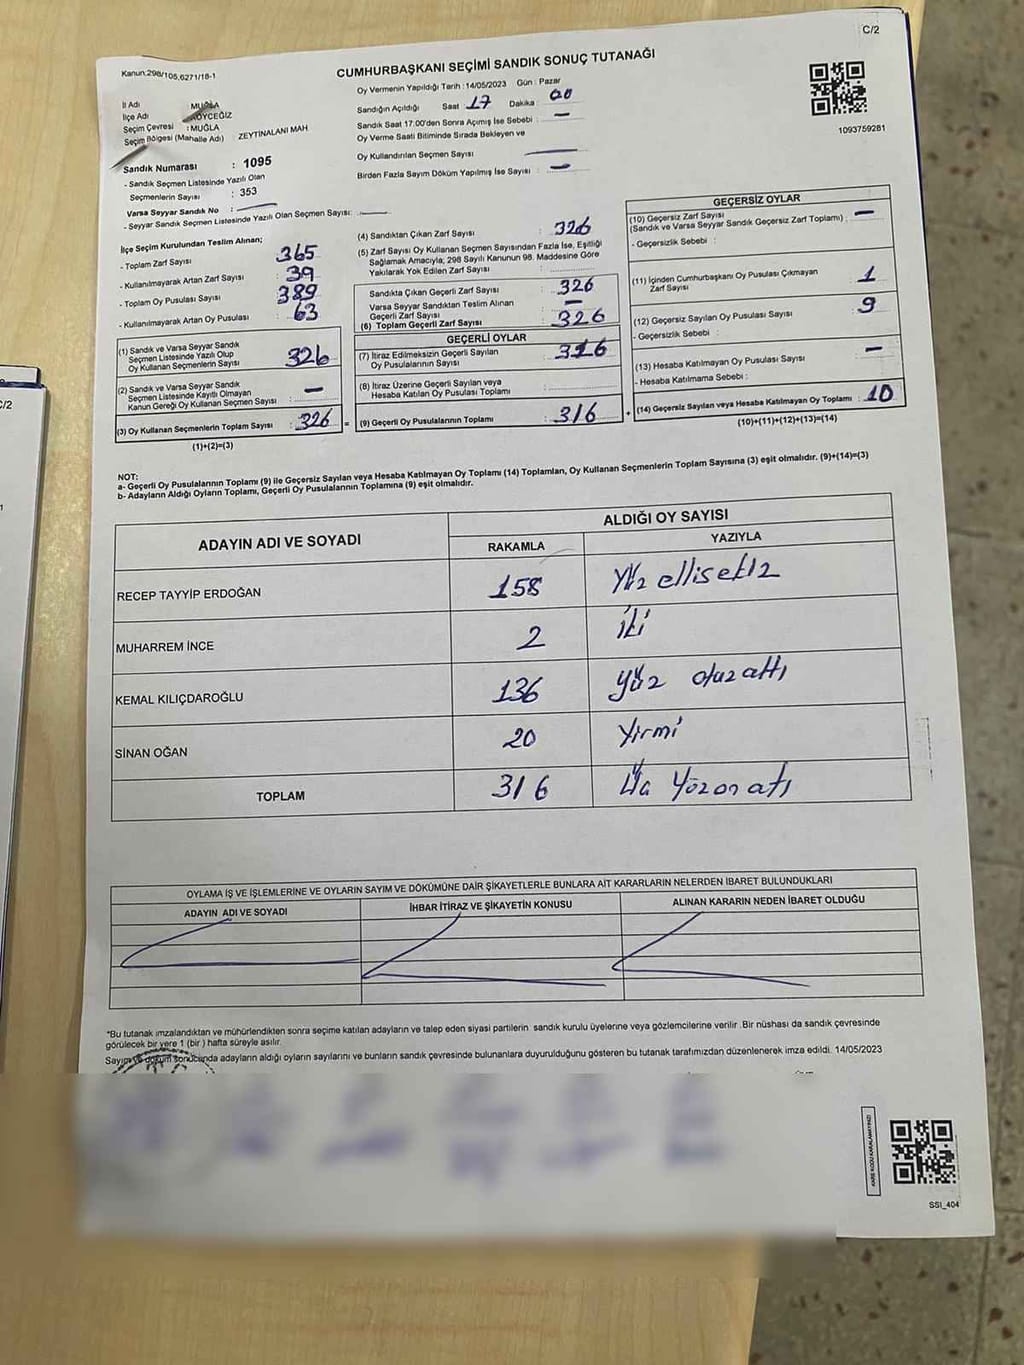 C/2
Kanun:298/105,6271/18-1
CUMHURBAŞKANI SEÇİMİ SANDIK SONUÇ TUTANAĞI
Oy Vermenin Yapıldığı Tarih :14/05/2023 Gün : Pazar
İl Adı MUĞLA
İlçe Adı KÖYCEĞİZ
Seçim Çevresi : MUĞLA
Seçim Bölgesi (Mahalle Adı) : ZEYTINALANI MAH
Sandığın Açıldığı Saat 17 Dakika : 00
Sandık Saat 17.00'den Sonra Açımış İse Sebebi : —
Oy Verme Saati Bitiminde Sırada Bekleyen ve
Oy Kullandırılan Seçmen Sayısı —
Birden Fazla Sayım Döküm Yapılmış İse Sayısı : —
1093759281
Sandık Numarası : 1095
- Sandık Seçmen Listesinde Yazılı Olan
Seçmenlerin Sayısı : 353
Varsa Seyyar Sandık No : —
- Seyyar Sandık Seçmen Listesinde Yazılı Olan Seçmen Sayısı: —
İlçe Seçim Kurulundan Teslim Alınan;
- Toplam Zarf Sayısı 365
- Kullanılmayarak Artan Zarf Sayısı : 39
- Toplam Oy Pusulası Sayısı 389
- Kullanılmayarak Artan Oy Pusulası : 63
(1) Sandık ve Varsa Seyyar Sandık
Seçmen Listesinde Yazılı Olup
Oy Kullanan Seçmenlerin Sayısı 326
(2) Sandık ve Varsa Seyyar Sandık
Seçmen Listesinde Kayıtlı Olmayan
Kanun Gereği Oy Kullanan Seçmen Sayısı : —
(3) Oy Kullanan Seçmenlerin Toplam Sayısı : 326 =
(1)+(2)=(3)
(4) Sandıktan Çıkan Zarf Sayısı : 326
(5) Zarf Sayısı Oy Kullanan Seçmen Sayısından Fazla İse, Eşitliği
Sağlamak Amacıyla; 298 Sayılı Kanunun 98. Maddesine Göre
Yakılarak Yok Edilen Zarf Sayısı :
Sandıkta Çıkan Geçerli Zarf Sayısı : 326
Varsa Seyyar Sandıktan Teslim Alınan
Geçerli Zarf Sayısı : —
(6) Toplam Geçerli Zarf Sayısı : 326
GEÇERLİ OYLAR
(7) İtiraz Edilmeksizin Geçerli Sayılan
Oy Pusulalarının Sayısı : 316
(8) İtiraz Üzerine Geçerli Sayılan veya
Hesaba Katılan Oy Pusulası Toplamı :
(9) Geçerli Oy Pusulalarının Toplamı : 316 +
GEÇERSİZ OYLAR
(10) Geçersiz Zarf Sayısı
(Sandık ve Varsa Seyyar Sandık Geçersiz Zarf Toplamı) : —
- Geçersizlik Sebebi :
(11) İçinden Cumhurbaşkanı Oy Pusulası Çıkmayan
Zarf Sayısı : 1
(12) Geçersiz Sayılan Oy Pusulası Sayısı : 9
- Geçersizlik Sebebi :
(13) Hesaba Katılmayan Oy Pusulası Sayısı : —
- Hesaba Katılmama Sebebi :
(14) Geçersiz Sayılan veya Hesaba Katılmayan Oy Toplamı : 10
(10)+(11)+(12)+(13)=(14)
NOT:
a- Geçerli Oy Pusulalarının Toplamı (9) ile Geçersiz Sayılan veya Hesaba Katılmayan Oy Toplamı (14) Toplamları, Oy Kullanan Seçmenlerin Toplam Sayısına (3) eşit olmalıdır. (9)+(14)=(3)
b- Adayların Aldığı Oyların Toplamı, Geçerli Oy Pusulalarının Toplamına (9) eşit olmalıdır.
ADAYIN ADI VE SOYADI ALDIĞI OY SAYISI
RAKAMLA YAZIYLA
RECEP TAYYİP ERDOĞAN 158 Yüz ellisekiz
MUHARREM İNCE 2 iki
KEMAL KILIÇDAROĞLU 136 yüz otuzaltı
SİNAN OĞAN 20 Yirmi
TOPLAM 316
OYLAMA İŞ VE İŞLEMLERİNE VE OYLARIN SAYIM VE DÖKÜMÜNE DAİR ŞİKAYETLERLE BUNLARA AİT KARARLARIN NELERDEN İBARET BULUNDUKLARI
ADAYIN ADI VE SOYADI İHBAR İTİRAZ VE ŞİKAYETİN KONUSU ALINAN KARARIN NEDEN İBARET OLDUĞU
*Bu tutanak imzalandıktan ve mühürlendikten sonra seçime katılan adayların ve talep eden siyasi partilerin sandık kurulu üyelerine veya gözlemcilerine verilir .Bir nüshası da sandık çevresinde
görülecek bir yere 1 (bir ) hafta süreyle asılır.
Sayım ve döküm sonucunda adayların aldığı oyların sayılarını ve bunların sandık çevresinde bulunanlara duyurulduğunu gösteren bu tutanak tarafımızdan düzenlenerek imza edildi. 14/05/2023
KARE KODU KARALAMAYINIZ!
SSI_404
C/2